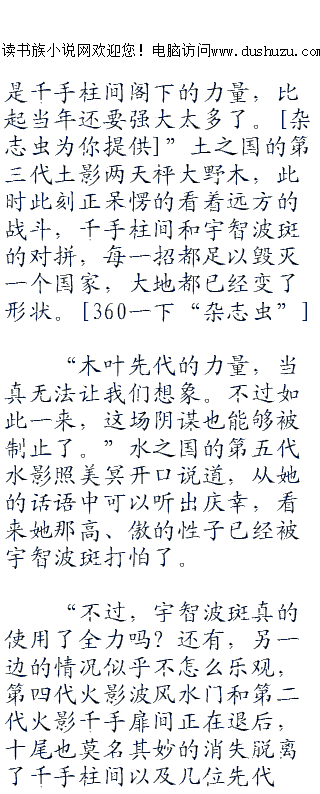 读书族小说网欢迎您！电脑访问www.dushuzu.com
是千手柱间阁下的力量，比
起当年还要强大太多了。[杂
志虫为你提供]”土之国的第
三代土影两天秤大野木，此
时此刻正呆愣的看着远方的
战斗，千手柱间和宇智波斑
的对拼，每一招都足以毁灭
一个国家，大地都已经变了
形状。[360一下“杂志虫”]
“木叶先代的力量，当
真无法让我们想象。不过如
此一来，这场阴谋也能够被
制止了。”水之国的第五代
水影照美冥开口说道，从她
的话语中可以听出庆幸，看
来她那高、傲的性子已经被
宇智波斑打怕了。
“不过，宇智波斑真的
使用了全力吗？还有，另一
边的情况似乎不怎么乐观，
第四代火影波风水门和第二
代火影千手扉间正在退后，
十尾也莫名其妙的消失脱离
了千手柱间以及几位先代